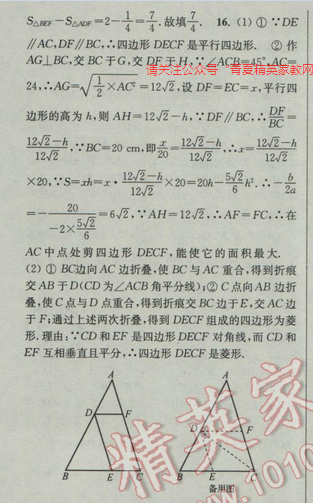 S△BEF－S△ADF＝2－1/4＝7/4. 故填7/4. 16. (1) ① ∵DE
∥AC,DF∥BC,∴四边形DECF是平行四边形. ② 作
AG⊥BC,交BC于G,交DF于H,∵∠ACB=45°,AC=
请关注公众号 青夏精英家教网
24,∴AG=√(1/2×AC²)=12√2,设DF=EC=x,平行四
边形的高为h,则AH=12√2－h,∵DF∥BC,∴DF/BC=
(12√2－h)/12√2,∵BC=20 cm,即x/20=(12√2－h)/12√2,∴x=(12√2－h)/12√2
×20,∵S=xh=x·(12√2－h)/12√2×20=20h－5√2/6 h².∴－b/2a
=－20/(－2×5√2/6)=6√2,∵AH=12√2,∴AF=FC,∴在
AC中点处剪四边形DECF,能使它的面积最大.
(2) ① BC边向AC边折叠,使BC与AC重合,得到折痕
交AB于D(CD为∠ACB角平分线);② C点向AB边折
叠,使C点与D点重合,得到折痕交BC边于E,交AC边
于F;通过上述两次折叠,得到DECF组成的四边形为菱
形.理由:∵CD和EF是四边形DECF对角线,而CD和
EF互相垂直且平分,∴四边形DECF是菱形.
A
D
F
B
E
C
A
D
F
B
E
备用图
精英家
www.1010